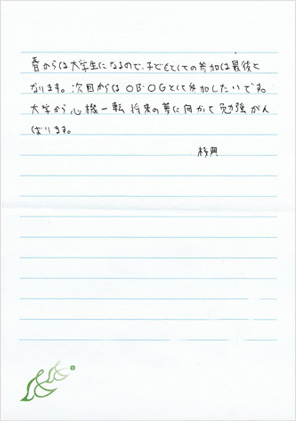 春からは大学生になるので、子どもとしての参加は最後と
なります。次回からはOB・OGとして参加したいです。
大学から心機一転 将来の夢に向かって勉強がん
ばります。